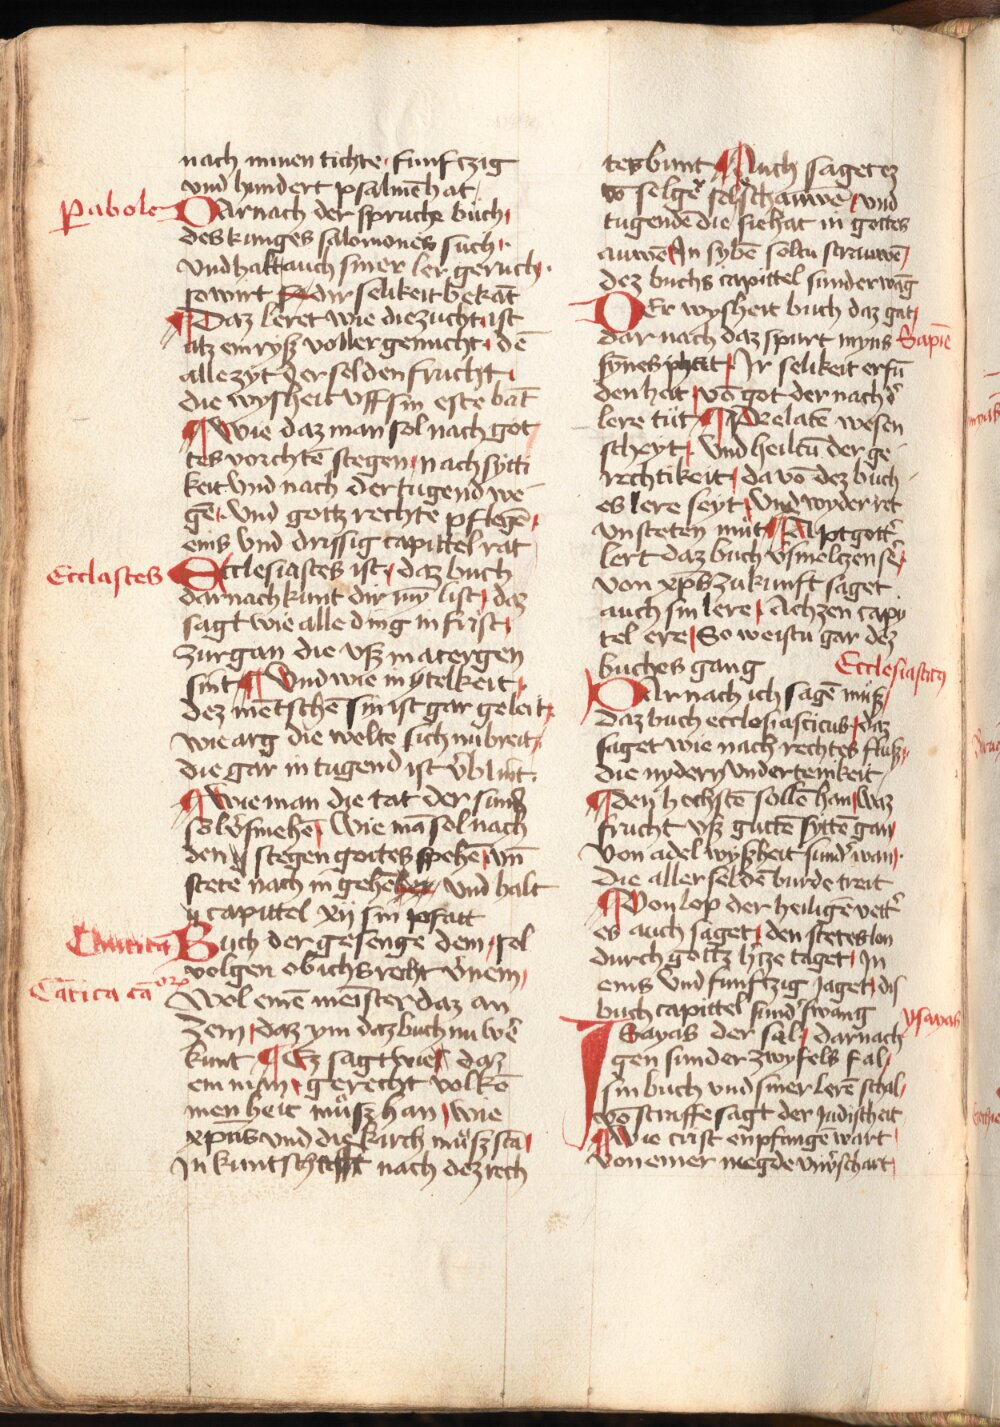 nach minen tichte funfczig
vnd hundert psalmē hat
Pabole
DArnach der spruch buch
des kunges salomones such
vnd halt auch siner ler geruch
so wirt dir selikeit bekāt
Daz leret wie die zucht ist
alz ein rysz voller genucht dē
alle zyt der selden frucht
die wysheit vff sin este bāt
Wie daz man sol nach got
tes vorchtē stegen nach sytti
keit vnd nach der tugend we
gē vnd gottz rechte pflegē
eins vnd drissig capittel rat
Ecclastes
Ecclesiastes ist daz buch
darnach kunt dir my list daz
sagt wie alle ding in frist
zurgan die vsz matergen
sint Vnd wie in ytelkeit
dez mētschē sin ist gar geleit
wie arg die welte sich nu breit
die gar in tugend ist v̓blint
Wie man die tat der sund̓
sol v̓smehē Wie mā sol nach
den stegen gottes spehē vn̄
stete nach in gehē vnd halt
capittel xij sin pfatt
Cantica
Buch der gesenge dem sol
volgen ob ich s recht v̓nem
Cātica cāor̄
Wol einē meister daz an
zem daz ym daz buch nu we̓
kunt Ez sagt wie daz
ein gerecht volkō
men heit müsz han wie
xpūs vnd die kirch müsz stā
In kuntschafft nach dez rech
tes bunt Auch saget ez
vō selge̓ sel schauwē vnd
tugendē die sie hat in gottes
auwē In sybē soltu schauwē
dez buchs capittel sunder wāg
DEr wysheit buch daz gat
dar nach daz spurt myns
Sapiē
synes Ir selikeit erfū
den heit vō got der nach d̓
lere tüt Prelatē wesen
scheyt vnd heiltū der ge
rechtikeit da vō dez buch
es lere seyt Vnd wyder ret
vnsteten müt Aptgott̓
lert daz buch v̓smeltzen se̓
von xpūs zukunft saget
auch sin lere Achzen capy
tel ere So weistu gar dez
buches gang
Ecclesiasticꝰ
DArnach ich sagē müsz
daz buch ecclesiasticus daz
saget wie nach rechtes flusz
die nydern vnderteinkeit
den hechstē sollē han waz
frucht vsz guttē syttē gan
Von adel wyszheit sund̓ wan
die aller seldē burde treit
Von lop der heiligē vett̓
es auch saget den stetes lon
durch gottz hitze taget In
eins vnd funfczig jaget dis
buch capittel sund̓ swang
ysayas
ISayas der sal darnach
gen sunder zwyfels fal
sin buch vnd siner lerē schal
vō straffe sagt der Judischeit
Wie crist enpfangē wart
von einer megde vnu̓schart